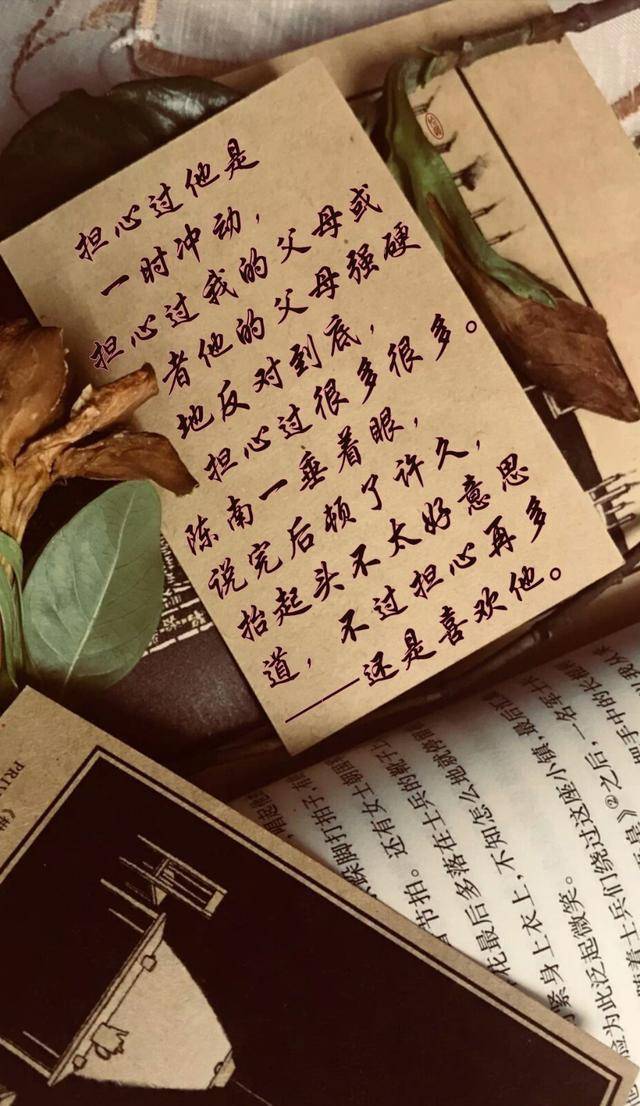 担心过他是
一时冲动，
担心过我的父母或
者他的父母强硬
地反对到底，
担心过很多很多。
陈南一垂着眼，
说完后顿了许久，
抬起头不太好意思
道，不过担心再多
——还是喜欢他。
拍。还有女士朝
花最后多落在士兵的靴子上
身上衣上，不知怎么地就
应为此泛起微笑。
着士兵们绕过这座小镇，最后
之后，一名年士
手中的长
PRIV